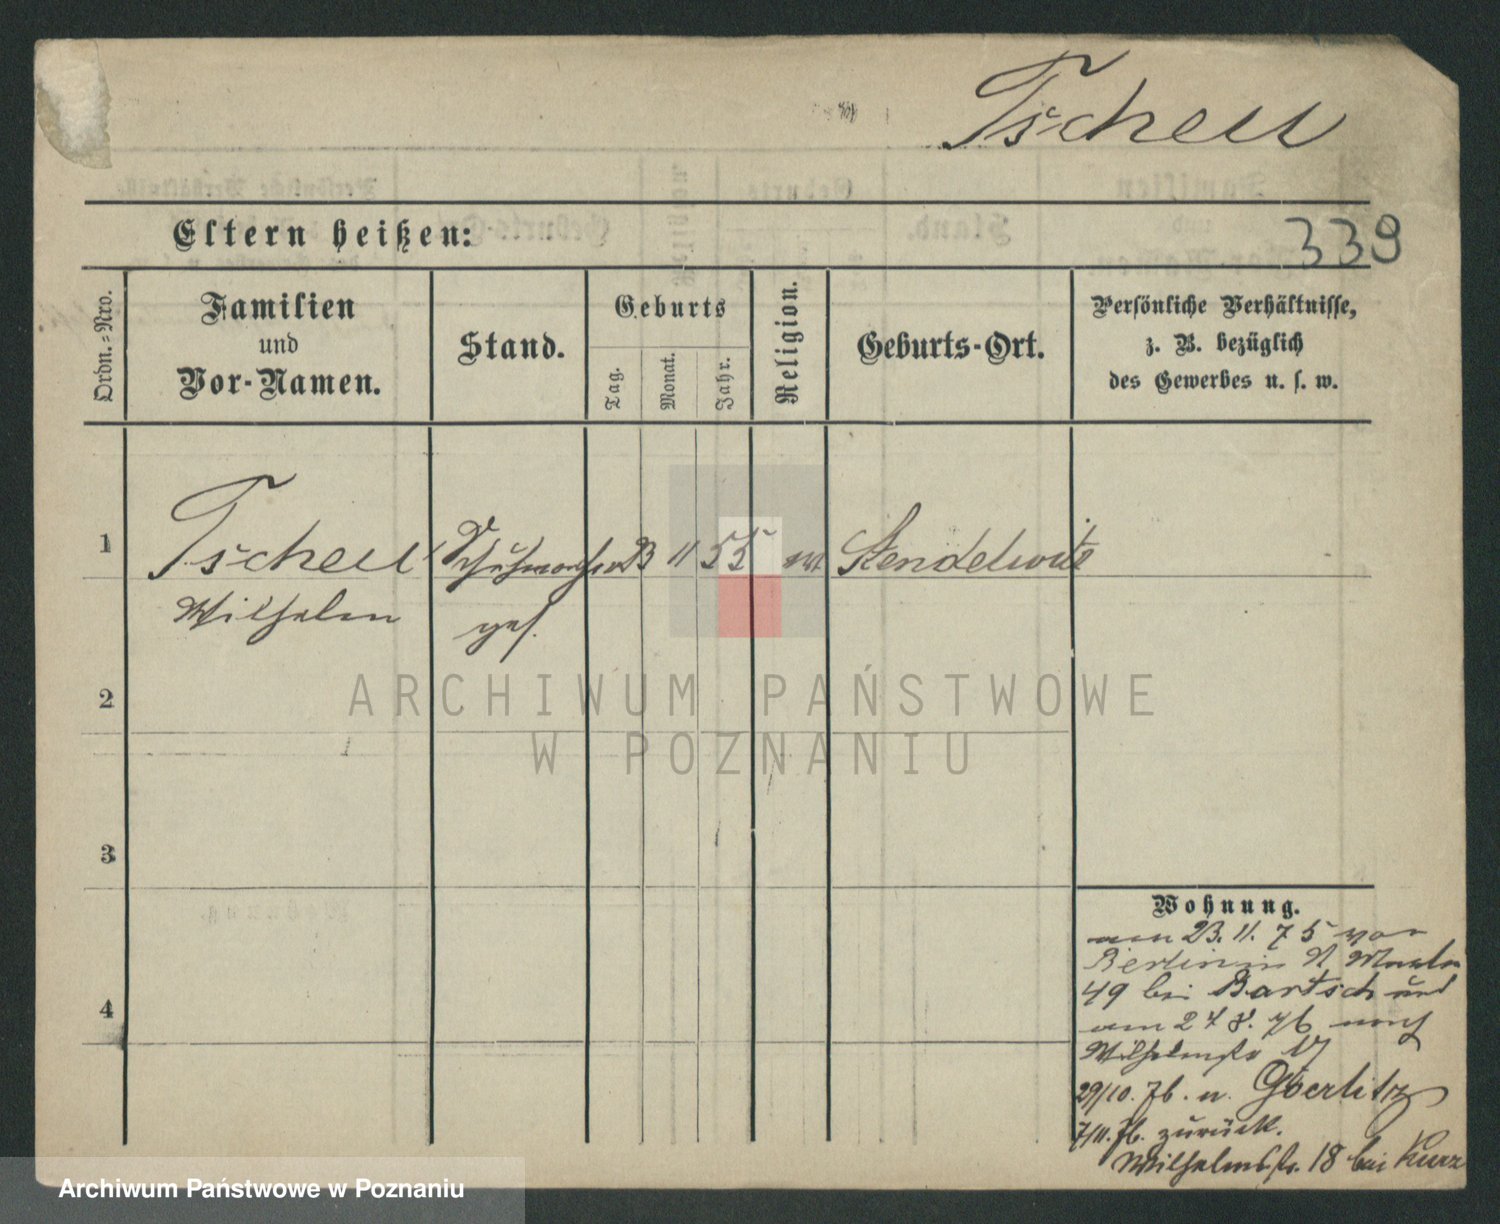 Tscheu
Eltern heißen:
339
Ordn.-Nro.
Familien
und
Vor-Namen.
Stand.
Geburts
Tag.
Monat.
Jahr.
Religion.
Geburts-Ort.
Persönliche Verhältnisse,
z. B. bezüglich
des Gewerbes u. s. w.
1
Tscheu
Wilhelm
Schuhmacher
ges.
23
11
55
Stendelwitz
2
3
4
Wohnung.
am 23. 11. 75 von
Berlin in
49 bei Bartsch und
am 8. 76 nach
Wilhelmstr 17
29/10. 76. n. Goerlitz
7/11. 76. zurück.
Wilhelmstr. 18 bei Kurz
ARCHIWUM PAŃSTWOWE
W POZNANIU
Archiwum Państwowe w Poznaniu